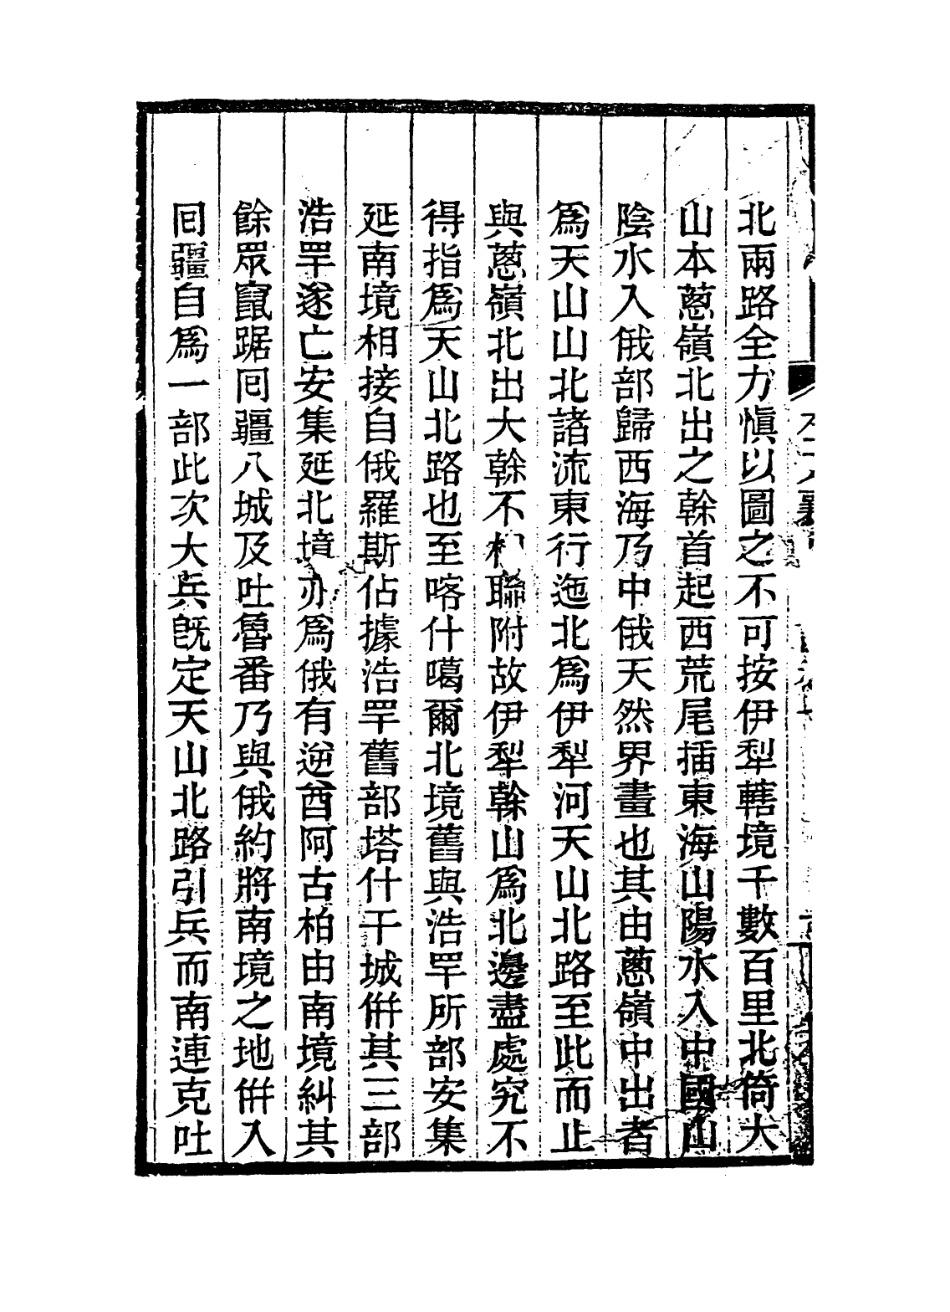 北兩路全力慎以圖之不可按伊犁轄境千數百里北倚大
山本蔥嶺北出之榦首起西荒尾插東海山陽水入中國山
陰水入俄部歸西海乃中俄天然界畫也其由蔥嶺中出者
爲天山山北諸流東行迤北爲伊犁河天山北路至此而止
與蔥嶺北出大榦不相聯附故伊犁榦山爲北邊盡處究不
得指爲天山北路也至喀什噶爾北境舊與浩罕所部安集
延南境相接自俄羅斯佔據浩罕舊部塔什干城倂其三部
浩罕遂亡安集延北境亦爲俄有逆酋阿古柏由南境糾其
餘眾竄踞囘疆八城及吐魯番乃與俄約將南境之地倂入
囘疆自爲一部此次大兵旣定天山北路引兵而南連克吐